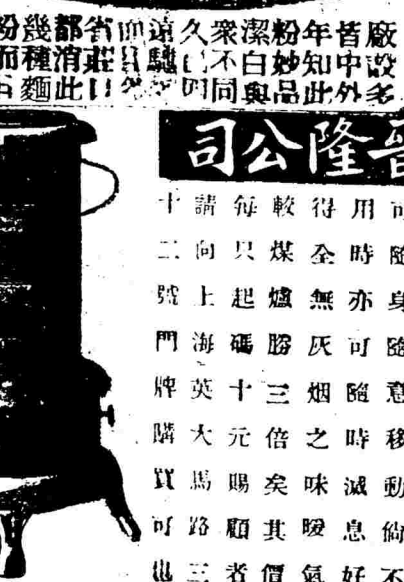 廠設多
皆中外
年知此
粉妙品
潔白與
衆不同
久已四
遠馳
省莊口
都消此
幾種麵
粉而
晉隆公司
可隨身隨意移動倘不
用時亦可隨時滅息好
得全無灰烟之味暖氣
較煤爐勝三倍矣其價
每只起碼十元賜顧者
請向上海英大馬路三
十二號門牌購買可也